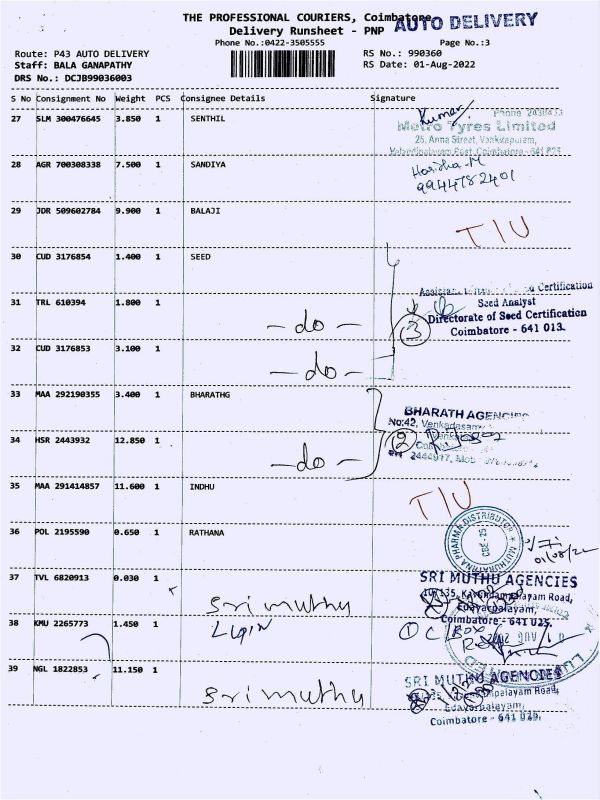 THE PROFESSIONAL COURIERS, Coimbatore
AUTO DELIVERY
Delivery Runsheet - PNP
Phone No.:0422-3505555 Page No.:3
Route: P43 AUTO DELIVERY RS No.: 990360
Staff: BALA GANAPATHY RS Date: 01-Aug-2022
DRS No.: DCJB99036003
S No Consignment No Weight PCS Consignee Details Signature
27 SLM 300476645 3.850 1 SENTHIL
Kumar
Metro Tyres Limited
25, Anna Street, Venkitapuram,
Coimbatore - 641 025
28 AGR 700308338 7.500 1 SANDIYA
Harisha-M
9944782401
29 JDR 509602784 9.900 1 BALAJI
T/U
30 CUD 3176854 1.400 1 SEED
Certification
31 TRL 610394 1.800 1
Seed Analyst
- do - 3 Directorate of Seed Certification
Coimbatore - 641 013.
32 CUD 3176853 3.100 1
- do -
33 MAA 292190355 3.400 1 BHARATHG
BHARATH AGENCIES
No:42,
34 HSR 2443932 12.850 1
2
- do -
2444917,
35 MAA 291414857 11.600 1 INDHU
T/U
36 POL 2195590 0.650 1 RATHANA
MUTHURATHNA PHARMA DISTRIBUTOR
CBE-25
01/08/22
37 TVL 6820913 0.030 1
SRI MUTHU AGENCIES
Sri muthu
Edayarpalayam,
Coimbatore - 641 025.
38 KMU 2265773 1.450 1
LUPIN
1 C/Box
39 NGL 1822853 11.150 1
SRI MUTHU AGENCIES
Sri muthu
Edayarpalayam,
Coimbatore - 641 025.